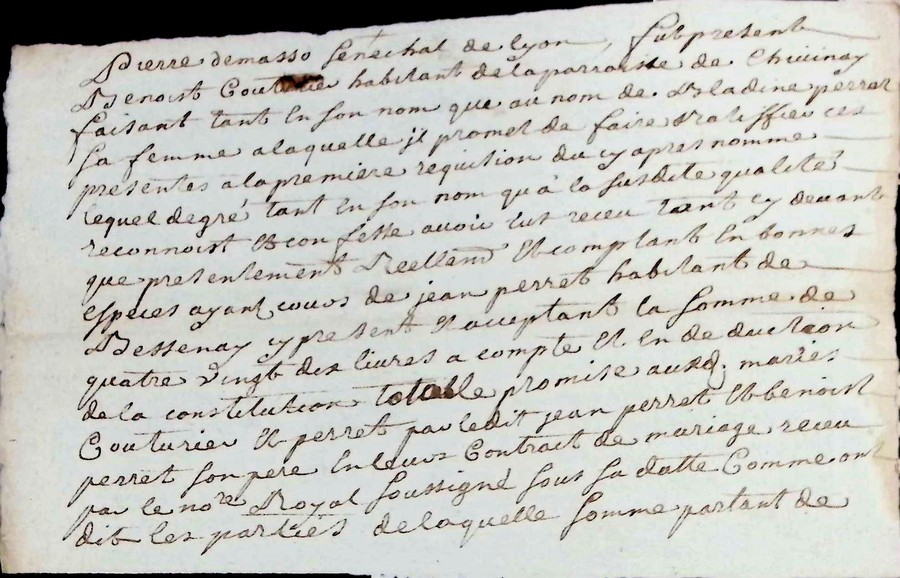 Pierre demasso senechal de lyon, fut present
Benoist Couturier habitant de la parroisse de Chivinay
faisant tant En son nom que au nom de Bladine perret
Sa femme a laquelle il promet de faire Ratiffier ces
presentes a la premiere requisition du cy apres nomme
lequel de gré tant En son nom qu'à la susdite qualité
reconnoist Et confesse avoir Eut receu tant cy devant
que presentement Reellemt Et comptant En bonnes
especes ayant cours de jean perret habitant de
Bessenay cy present Et acceptant la somme de
quatre vingt dix livres a compte Et En deduction
de la constitution totalle promise auxd. mariés
Couturier Et perret par ledit jean perret Et benoist
perret son pere En leurs Contract de mariage receu
par le nore Royal soussigné sous sa datte Comme ont
dit les parties de laquelle somme partant de